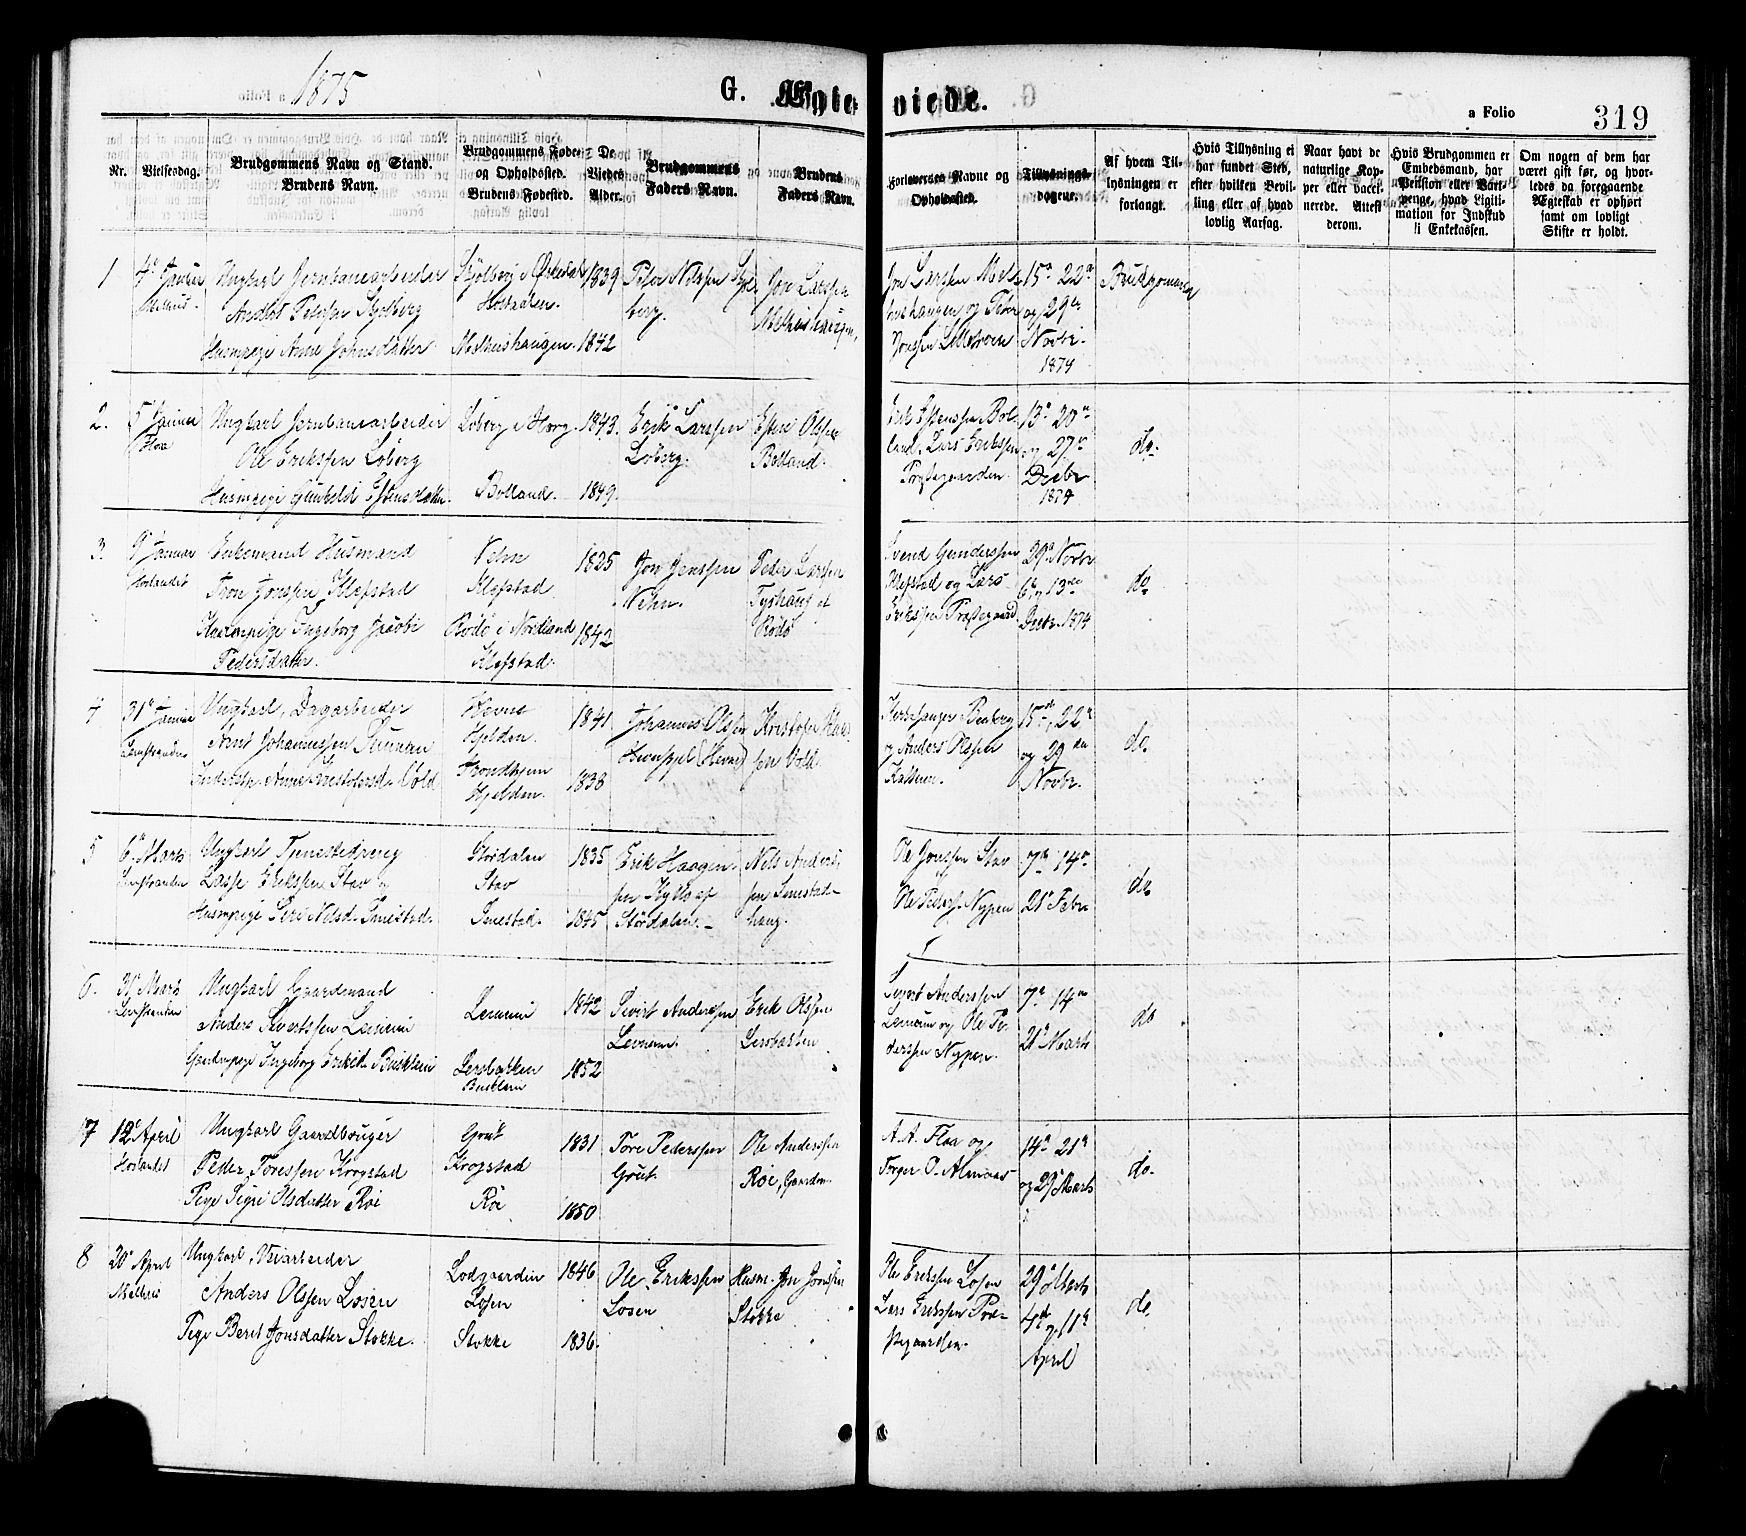 1875
G. Ægteviede.
a Folio 319
Nr.
Vielsesdag.
Brudgommens Navn og Stand.
Brudens Navn.
Brudgommens Føde-
og Opholdssted.
Brudens Fødested.
De
Viedes
Alder.
Brudgommens
Faders Navn.
Brudens
Faders Navn.
Forlovernes Navne og
Opholdssted.
Tillysnings-
dagene.
Af hvem Til-
lysningen er
forlangt.
Hvis Tillysning ei
har fundet Sted,
efter hvilken Bevil-
ling eller af hvad
lovlig Aarsag.
Naar havt de
naturlige Kop-
per eller vacci-
nerede. Attest
derom.
Hvis Brudgommen er
Embedsmand, har
Pension eller Vart-
penge, hvad Ligiti-
mation for Indskud
i Enkekassen.
Om nogen af dem har
været gift før, og hvor-
ledes da foregaaende
Ægteskab er ophørt
samt om lovligt
Skifte er holdt.
1
4de Januar
Melhus
Ungkarl Jernbanearbeider
Andr. Peterssen Skjølberg
Huuspige Anne Johnsdatter
Skjølberg i Ørkedal
Melhushaugen
1839
1842
Peter Nilssen Skjøl-
berg.
Jon Larssen
Melhushaugen,
Jon Larssen Mel-
hushaugen og Peter
Jonssen
15de 22de
og 29de
Novbr.
1874
Brudgommen
2.
5 Januar
Flaa
Ungkarl Jernbanearbeider
Ole Erikssen Løberg
Huuspige Gunhild Estensdatter
Løberg i Horg.
Bolland.
1843.
1849.
Erik Larssen
Løberg.
Esten Olssen
Bolland.
Erik Estenssen Bol-
land, Lars Erikssen
Præstegaarden.
13de 20de
og 27de
Decbr
1874
do.
3.
9 Januar
Hølandet
Enkemand Husmand
Tron Jonssen Klefstad
Huuspige Ingeborg Jacobi
Pedersdatter.
Vehn
Klefstad
Rødø i Nordland
Klefstad.
1825
1842
Jon Jenssen
Vehn.
Peder Larssen
Tyshaug af
Rødø
Svend Gunderssen
Klefstad og Lars
Erikssen Præstegaard
29de Novbr
6te og 13de
Decbr. 1874
do
4
31te Januar
Leinstranden
Ungkarl, Dagarbeider
Arnt Johannessen
Anne Kristofersd. Vold
Hevne
Hjelden.
Trondhjem
Hjelden.
1841.
1838
Johannes Olssen
(Hevne)
Kristofer
sen Vold.
og Anders Olssen
15de, 22de
og 29de
Novbr.
do.
5
6te Marts
Leinstranden
Ungkarl Tjenestedreng
Lasse Erikssen Stav
Huuspige Siri Nilsd.
Stördalen
Stav
1835
1845
Erik Haagen-
sen Kyllo af
Stördalen.
Nils Anders-
sen
haug.
Ole Jonssen Stav
Ole Peders. Nypen
7de 14de
21de Febr
do
6.
31te Marts
Leinstranden
Ungkarl Gaardmand
Anders Sivertssen Lereim
Gaardmpige Ingeborg Eriksd. Buskleim
Lereim
Lersbakken
Buskleim
1842
1852
Sivert Anderssen
Lereim.
Erik Olssen
Lersbakken
Sivert Anderssen
Lereim og Ole Pe-
derssen Nypen.
7de 14de
21de Marts
do
7
12te April
Hølandet
Ungkarl Gaardbruger
Peder Toressen Krogstad
Pige Sigri Olsdatter Røe
Grut
Krogstad
Røe
1831
1850
Tore Pederssen
Grut.
Ole Anderssen
Røe, Gaardm.
A. A. Flaa og
Torger O. Almaas
14de 21de
og 29de Marts
do.
8
20de April
Melhus
Ungkarl, Veiarbeider
Anders Olssen Losen
Pige Beret Jonsdatter Stokke.
Lodgaarden
Losen
Stokke
1846
1836.
Ole Erikssen
Losen
Husm. Jon Jonssen
Stokke
Ole Erikssen Losen
Lars Erikssen Præ-
stegaarden.
29de Marts
4de og 11te
April
do